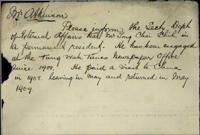 Mr Atkinson
Please inform the Secty Dept
of External Affairs that Mr Ling Chin
is permanent resident. He has been engaged
at the Tung Wah Times Newspaper Office
since 1900. He paid a visit to China
in 1908 leaving in May and returned in May
1909.